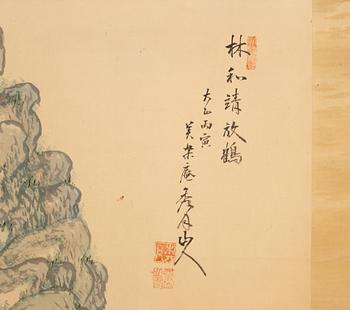 林和靖放鶴
大正丙寅
美楽庵秀月山人